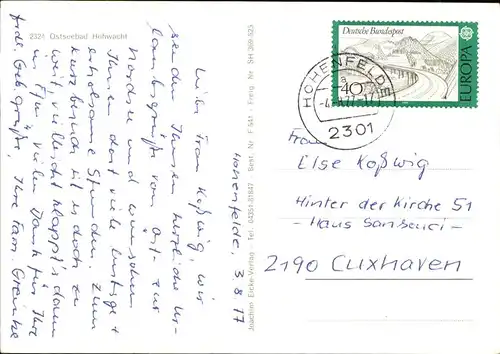 2321 Ostseebad Hohwacht
Hohenfelde, 3.8.77
Liebe Frau Koßwig, wir
senden Ihnen herzliche Ur-
laubsgrüße von Ost- zur
Nordsee und wünschen
Ihnen dort viele lustige +
erholsame Stunden. Zum
Kurzbesuch ist es doch zu
weit, vielleicht klappt's dann
im Vielen Dank für Ihre
Geb.grüße, Ihre Fam.
Joachim Eicke-Verlag - Tel. 04351-81847 Best. Nr. F 541 - Freig. Nr. SH 369/825
Deutsche Bundespost
40
EUROPA
HOHENFELDE
a
2301
Frau
Else Koßwig
Hinter der Kirche 51
- Haus Sanssouci -
2190 Cuxhaven